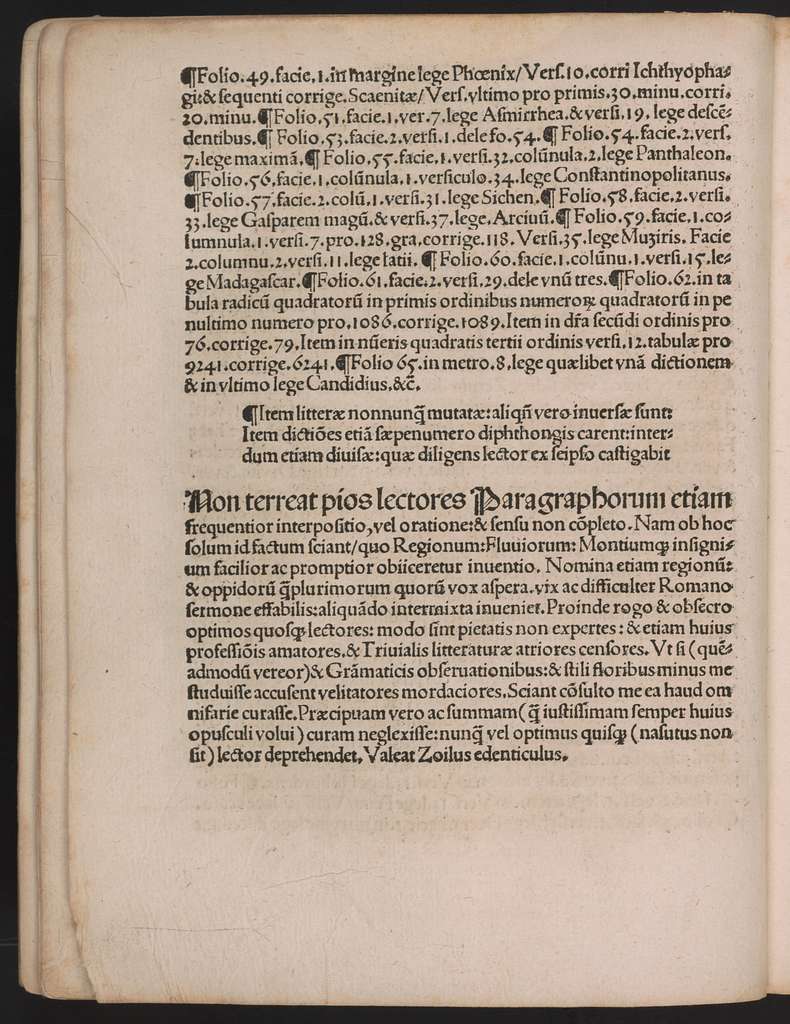 ¶Folio.49.facie.1.in margine lege Phœnix/Verſ.10.corri Ichthyopha⸗
gi:& ſequenti corrige.Scaenitæ/Verſ.vltimo pro primis.30.minu.corri.
20.minu.¶Folio.51.facie.1.ver.7.lege Aſmirrhea.& verſi.19.lege deſcē⸗
dentibus.¶ Folio.53.facie.2.verſi.1.dele fo.54.¶ Folio.54.facie.2.verſ.
7.lege maximā.¶ Folio.55.facie.1.verſi.32.colūnula.2.lege Panthaleon.
¶Folio.56.facie.1.colūnula.1.verſiculo.34.lege Conſtantinopolitanus.
¶Folio.57.facie.2.colū.1.verſi.31.lege Sichen.¶ Folio.58.facie.2.verſi.
33.lege Gaſparem magū.& verſi.37.lege.Arciuū.¶ Folio.59.facie.1.co⸗
lumnula.1.verſi.7.pro.128.gra.corrige.118. Verſi.35.lege Muziris. Facie
2.columnu.2.verſi.11.lege tatii. ¶ Folio.60.facie.1.colūnu.1.verſi.15.le⸗
ge Madagaſcar.¶Folio.61.facie.2.verſi.29.dele vnū tres.¶Folio.62.in ta
bula radicū quadratorū in primis ordinibus numeroꝝ quadratorū in pe
nultimo numero pro.1086.corrige.1089.Item in dr̄a ſecūdi ordinis pro
76.corrige.79.Item in nūeris quadratis tertii ordinis verſi.12.tabulæ pro
9241.corrige.6241.¶Folio 65.in metro.8.lege quælibet vnā dictionem
& in vltimo lege Candidius.&c̄.
¶Item litteræ nonnunq̄ mutatæ:aliqn̄ vero inuerſæ ſunt:
Item dictiōes etiā ſæpenumero diphthongis carent:inter⸗
dum etiam diuiſæ:quæ diligens lector ex ſeipſo caſtigabit
Non terreat pios lectores Paragraphorum etiam
frequentior interpoſitio,vel oratione:& ſenſu non cōpleto. Nam ob hoc
ſolum id factum ſciant/quo Regionum:Fluuiorum: Montiumqꝫ inſigni⸗
um facilior ac promptior obiiceretur inuentio. Nomina etiam regionū:
& oppidorū q̄plurimorum quorū vox aſpera.vix ac difficulter Romano
ſermone effabilis:aliquādo intermixta inueniet.Proinde rogo & obſecro
optimos quoſqꝫ lectores: modo ſint pietatis non expertes : & etiam huius
profeſſiōis amatores.& Triuialis litteraturæ atriores cenſores. Vt ſi ( quē⸗
admodū vereor)& Grāmaticis obſeruationibus:& ſtili floribus minus me
ſtuduiſſe accuſent velitatores mordaciores.Sciant cōſulto me ea haud om
nifarie curaſſe.Præcipuam vero ac ſummam( q̄ iuſtiſſimam ſemper huius
opuſculi volui ) curam neglexiſſe:nunq̄ vel optimus quiſqꝫ ( naſutus non
ſit ) lector deprehendet. Valeat Zoilus edenticulus.